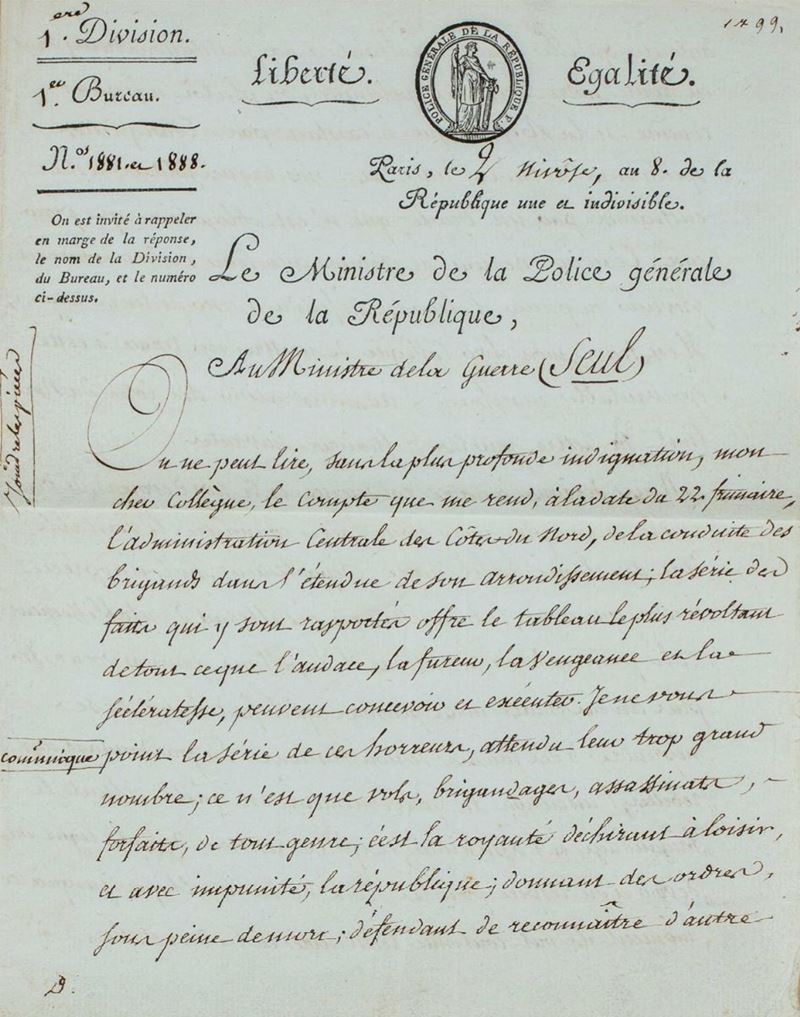 1799.
1.ere Division.
1.er Bureau.
N.os 1881. et 1888.
On est invité à rappeler
en marge de la réponse,
le nom de la Division,
du Bureau, et le numéro
ci-dessus.
Liberté.
POLICE GÉNÉRALE DE LA RÉPUBLIQUE F.
Egalité.
Paris, le 2 Nivôse, an 8. de la
République une et indivisible.
Le Ministre de la Police générale
de la République,
Au Ministre de la Guerre (Seul)
Joindre les pièces
On ne peut lire, sans la plus profonde indignation, mon
cher Collègue, le compte que me rend, à la date du 22 frimaire,
l'administration Centrale des Côtes du Nord, de la conduite des
brigands dans l'étendue de son arrondissement; la série des
faits qui y sont rapportés offre le tableau le plus révoltant
de tout ce que l'audace, la fureur, la vengeance et la
scélératesse, peuvent concevoir et exécuter. Je ne vous
communique point la série de ces horreurs, attendu leur trop grand
nombre; ce n'est que vols, brigandages, assassinats,
forfaits, de tout genre; c'est la royauté déchirant à loisir,
et avec impunité, la république; donnant des ordres,
sous peine de mort; défendant de reconnaître d'autre
D.